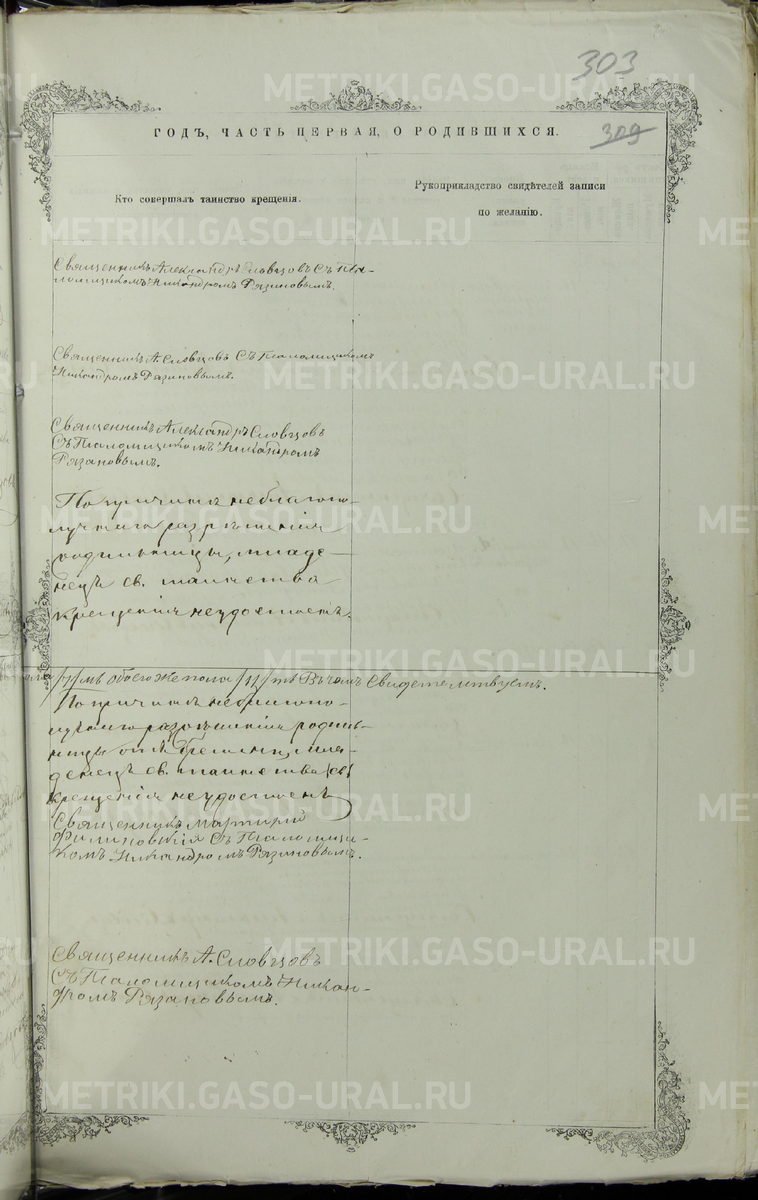 303
309
ГОДЪ, ЧАСТЬ ПЕРВАЯ, О РОДИВШИХСЯ.
Кто совершалъ таинство крещенія.
Рукоприкладство свидѣтелей записи
по желанію.
Священникъ Александръ Словцовъ Съ Пса-
ломщикомъ Никандромъ Рязановымъ.
Священникъ А. Словцовъ Съ Псаломщикомъ
Никандромъ Рязановымъ.
Священникъ Александръ Словцовъ
Съ Псаломщикомъ Никандромъ
Рязановымъ.
По причинѣ неблагопо-
лучнаго разрѣшенія
родильницы, младе-
нецъ св. таинства
крещенія неудостоенъ.
обоего же пола Въ чемъ Свидетельствуетъ.
По причинѣ неблагопо-
лучнаго разрѣшенія родиль-
ницы отъ бремени, мла-
денецъ св. таинства
крещенія неудостоенъ
Священникъ Мартирій
Съ Псаломщи-
комъ Никандромъ Рязановымъ.
Священникъ А. Словцовъ
Съ Псаломщикомъ Никан-
дромъ Рязановымъ.
METRIKI.GASO-URAL.RU